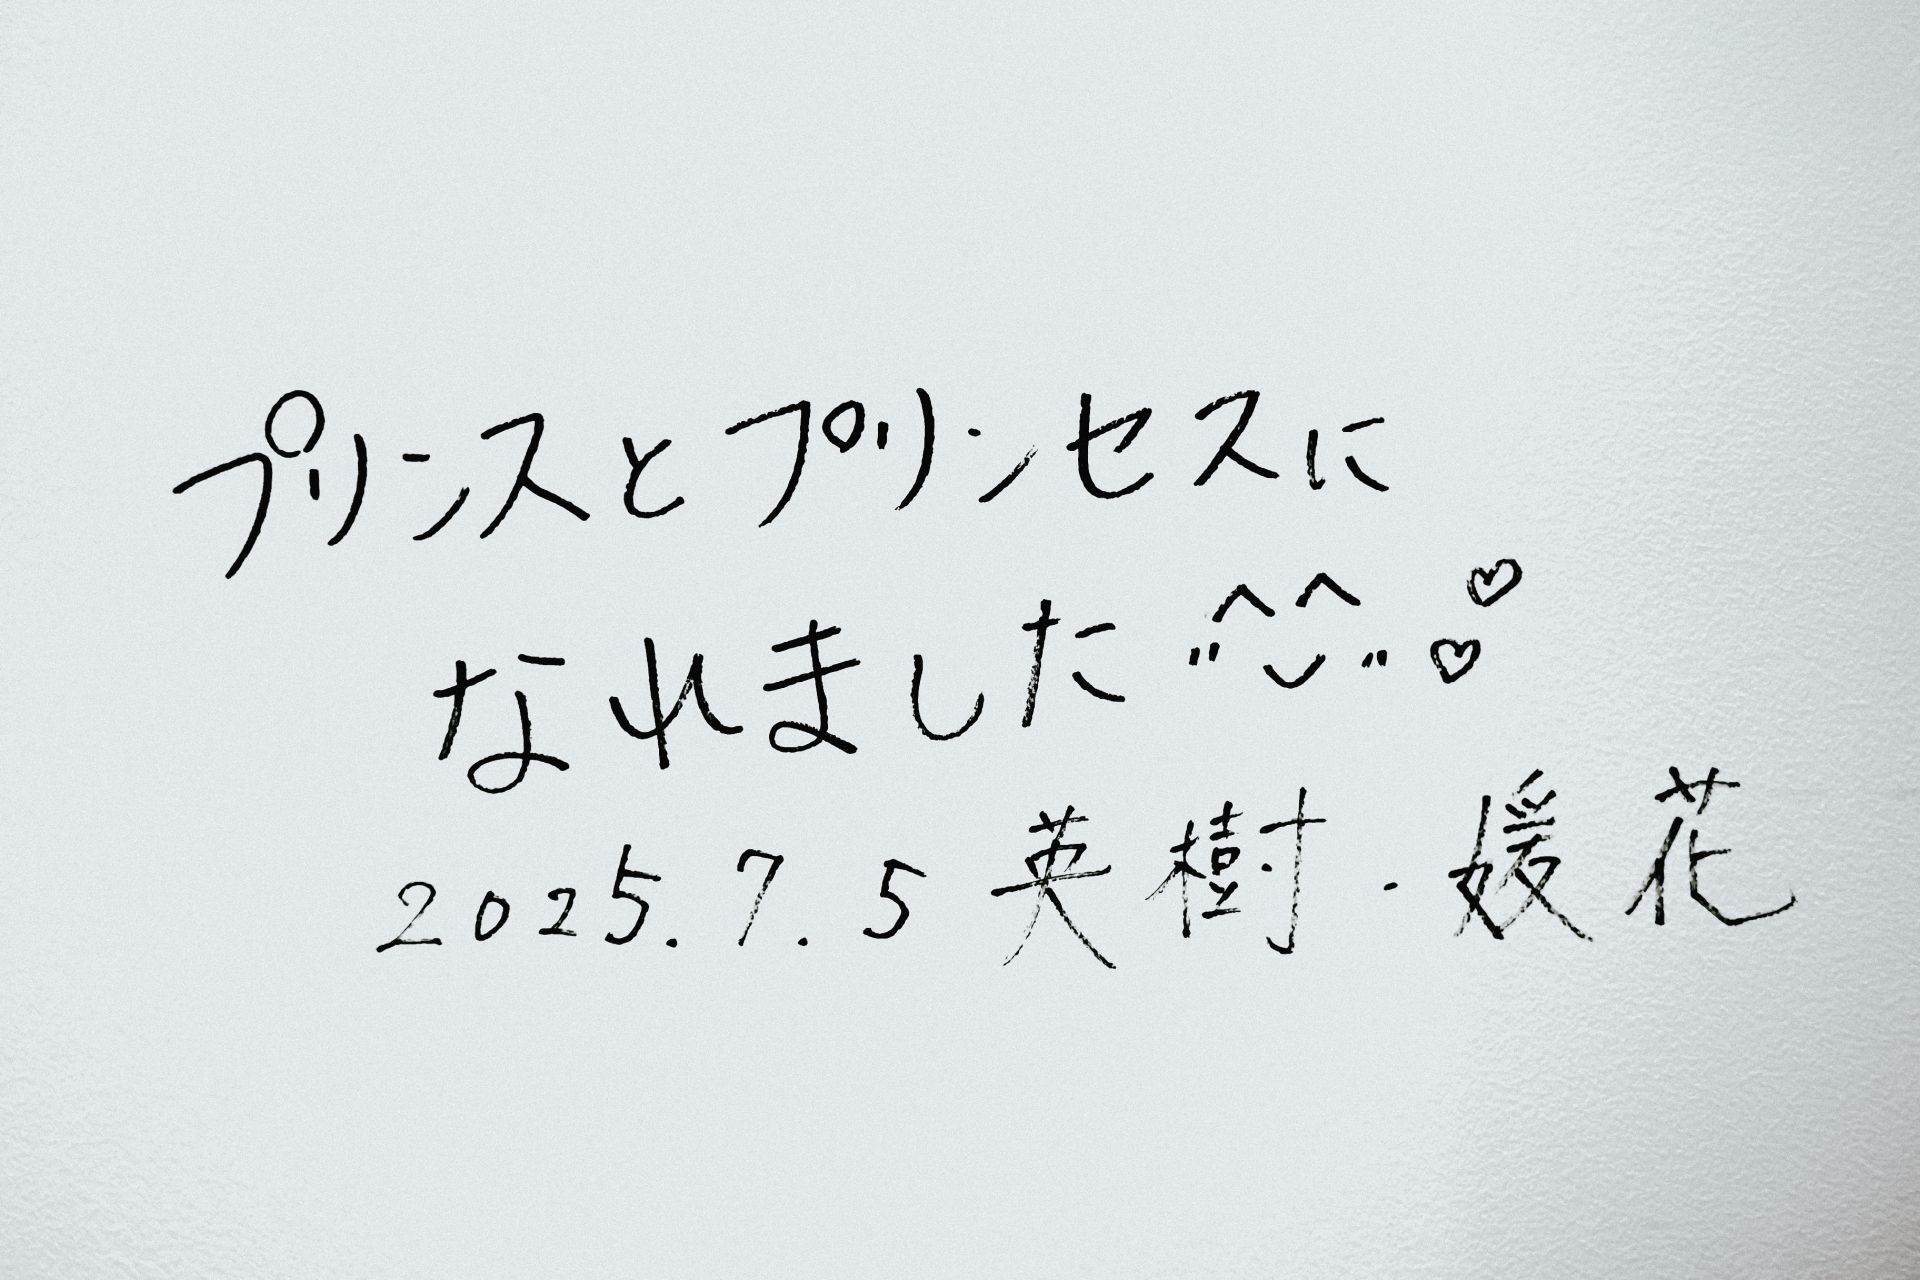 プリンスとプリンセスに
なれました"^^" ♡♡
2025.7.5 英樹・媛花